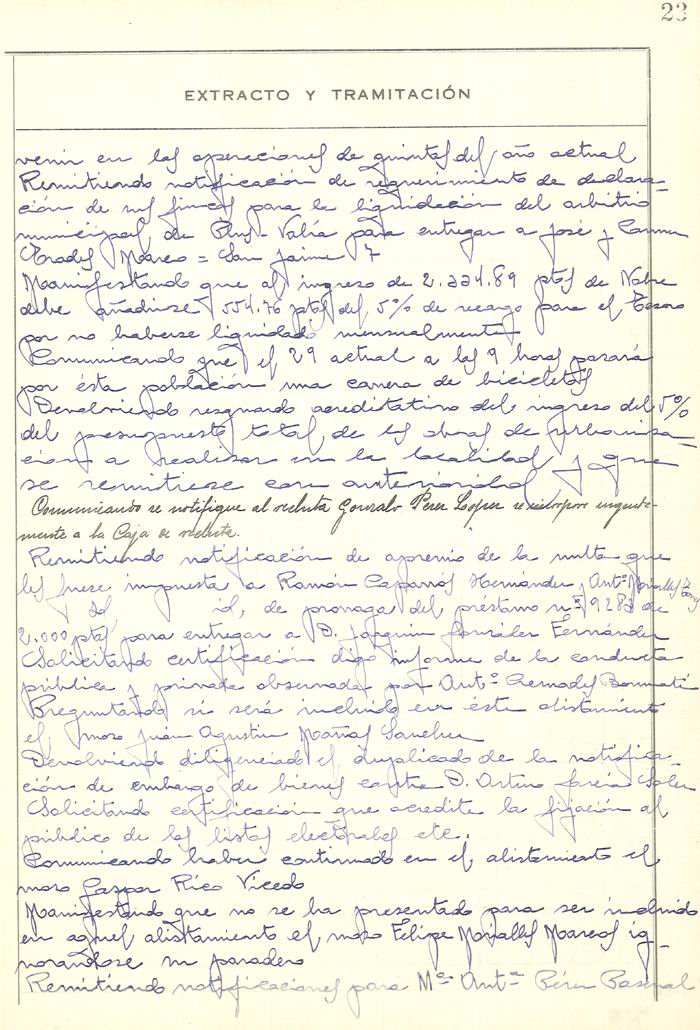 23
EXTRACTO Y TRAMITACIÓN
venir en las operaciones de quintas del año actual
Remitiendo notificación de requerimiento de declara-
ción de sus fincas para la liquidación del arbitrio
municipal de Plus-Valía para entregar a José y Carmen
Prades Marco = San Jaime 7
Manifestando que al ingreso de 2.224.89 ptas de Nobre
debe añadirse 554.76 ptas del 5% de recargo para el Tesoro
por no haberse liquidado mensualmente
Comunicando que el 29 actual a las 9 horas pasará
por ésta población una carrera de bicicletas
Devolviendo resguardo acreditativo del ingreso del 5%
del presupuesto total de las obras de urbaniza-
ción a realizar en la localidad y que
se remitiese con anterioridad
Comunicando se notifique al recluta Gonzalo Perez Lopez se incorpore urgente-
mente a la Caja de recluta.
Remitiendo notificación de apremio de la multa que
les fuese impuesta a Ramón Caparros Hernández y Antº
y id id, de prorroga del préstamo nº 9283 de
2.000 ptas para entregar a D. Joaquín González Fernández
Solicitando certificación digo informe de la conducta
pública y privada observada por Antº Cremades Bonmatí
Preguntando si será incluido en éste alistamiento
el mozo Juan Agustin Mañas Sanchez
Devolviendo diligenciado el duplicado de la notifica-
ción de embargo de bienes contra D. Arturo García Soler
Solicitando certificación que acredite la fijación al
público de las listas electorales etc.
Comunicando haber continuado en el alistamiento el
mozo Gaspar Rico Vicedo
Manifestando que no se ha presentado para ser incluido
en aquel alistamiento el mozo Felipe Miralles Marcos ig-
norandose su paradero
Remitiendo notificaciones para Mª Antª Pérez Pascual